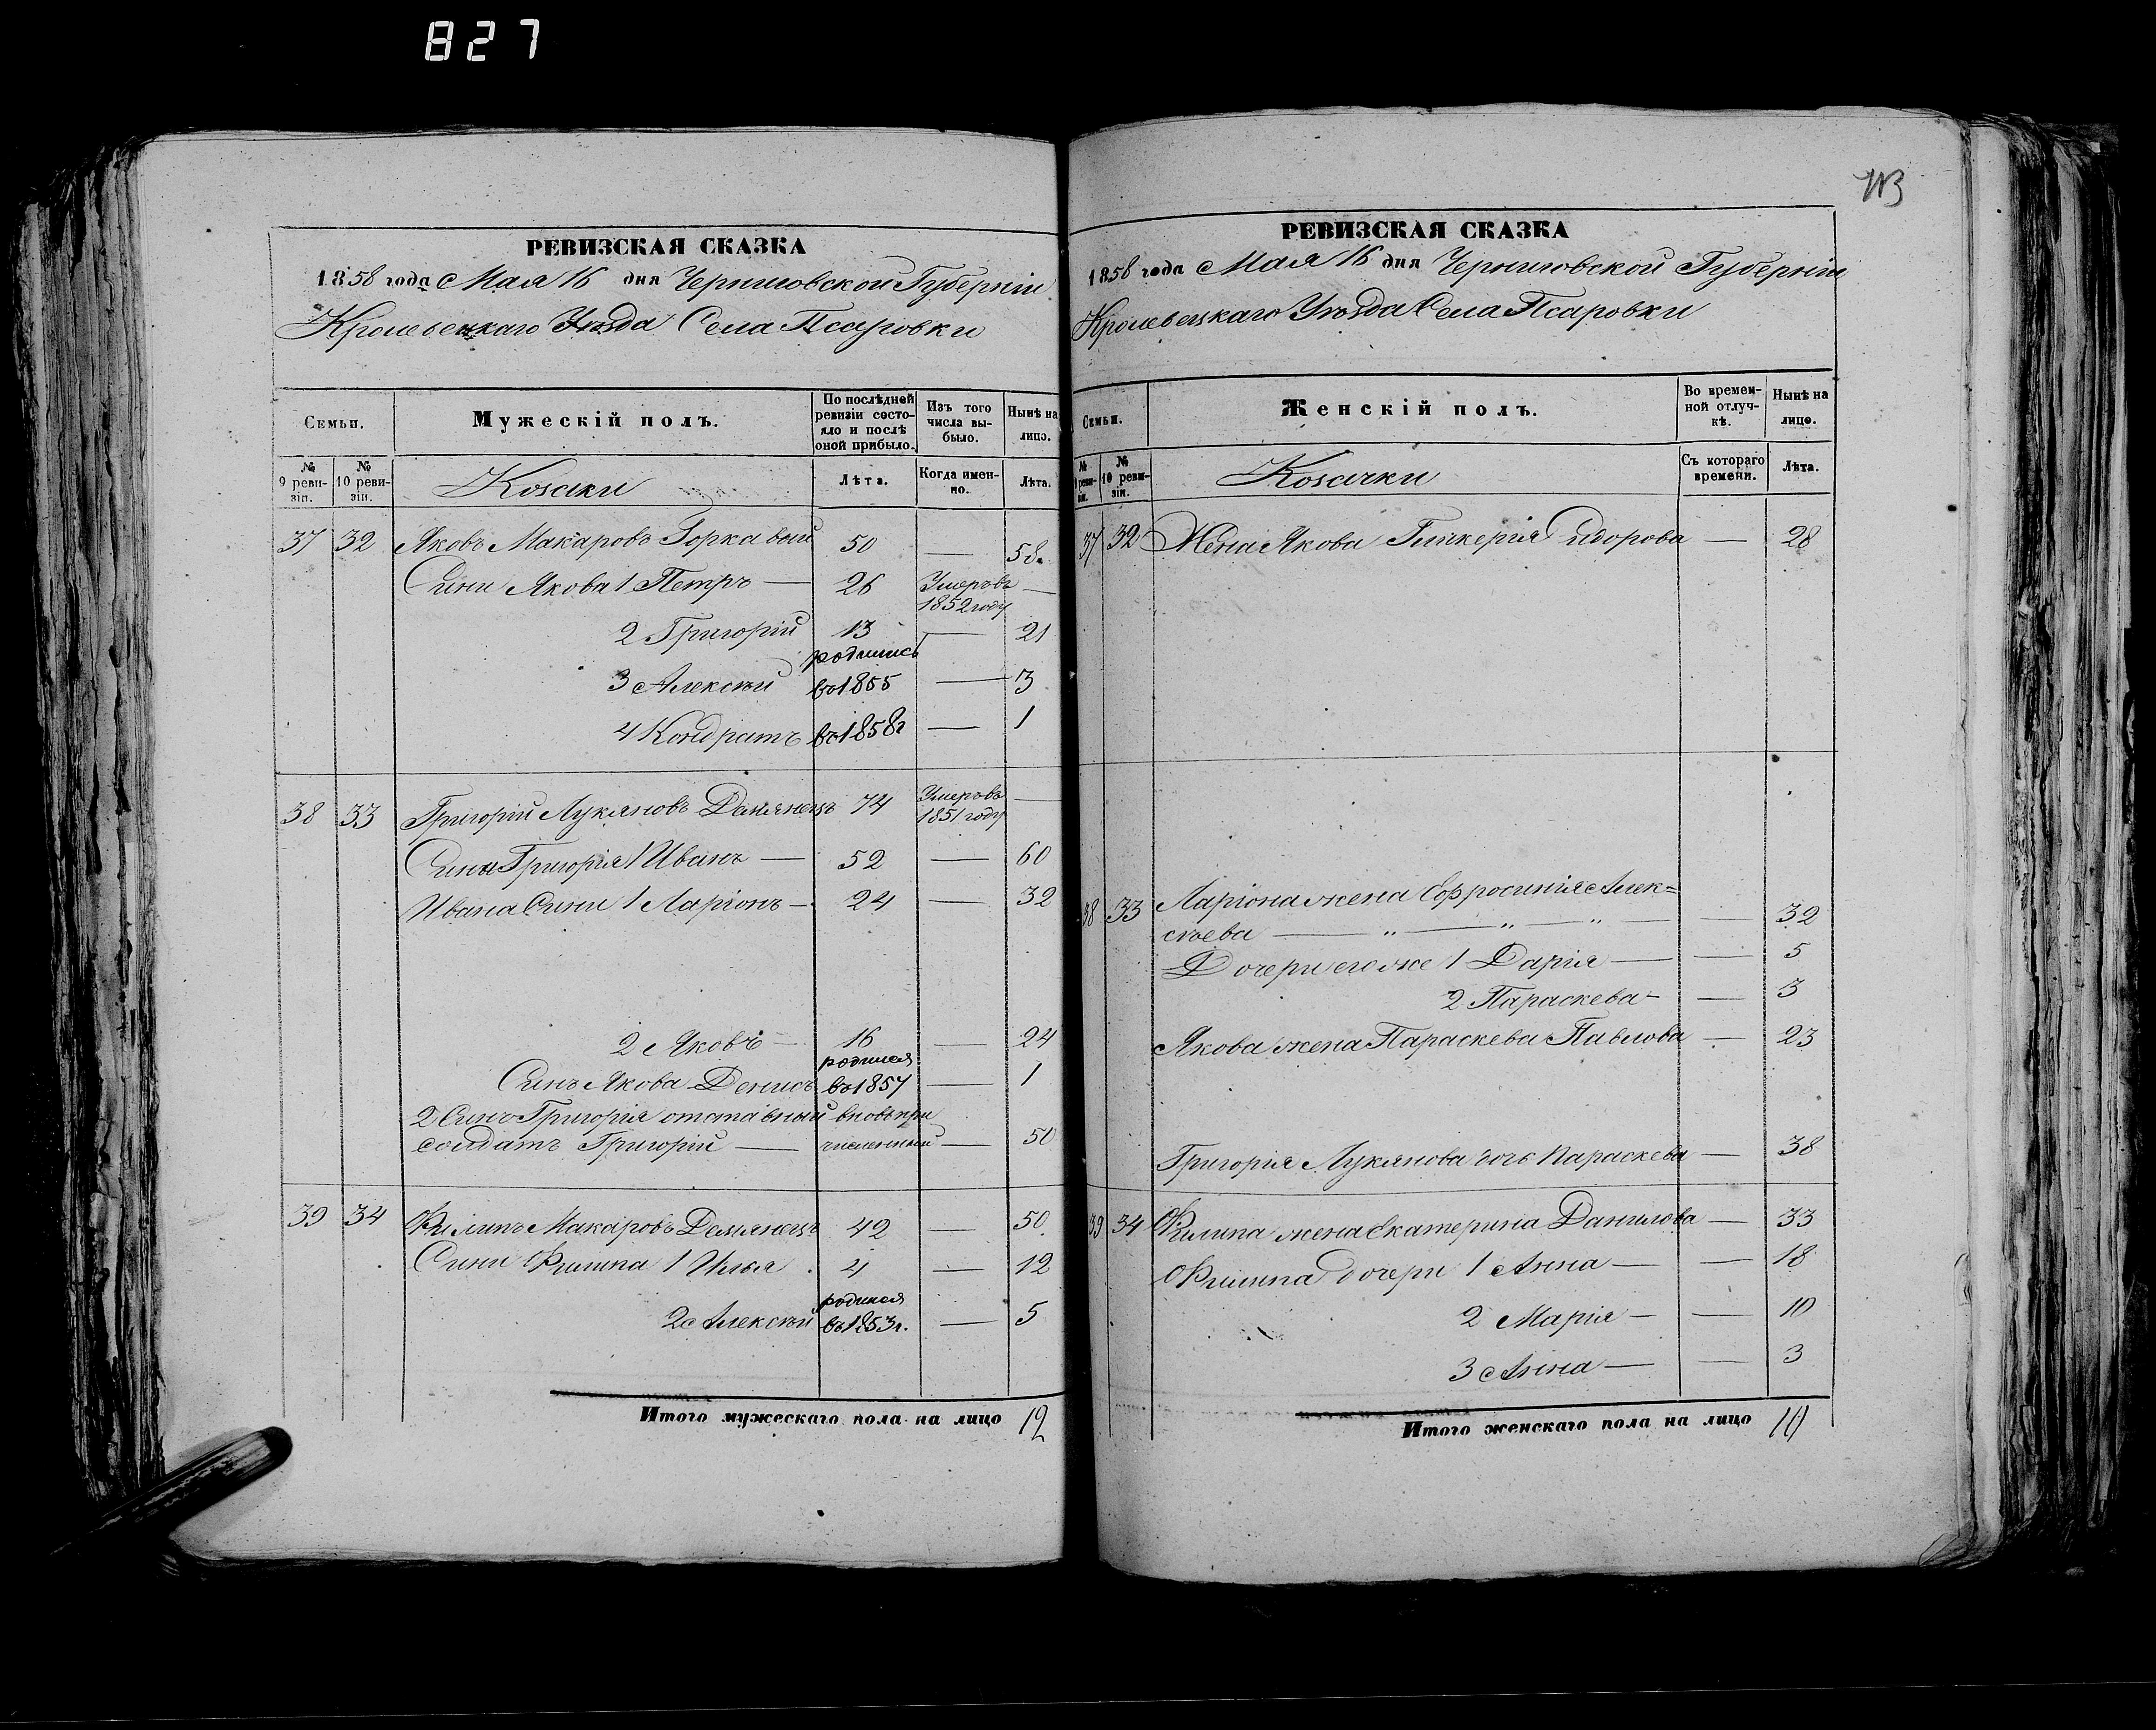 827
РЕВИЗСКАЯ СКАЗКА
1858 года Мая 16 дня Черниговской Губерніи
Кролевецкаго Уѣзда Села Псаровки
Семьи.
Мужескій полъ.
По послѣдней ревизіи состояло и послѣ оной прибыло.
Изъ того числа выбыло.
Нынѣ на лицо.
№ 9 ревизіи.
№ 10 ревизіи.
Козаки
Лѣта.
Когда именно.
Лѣта.
37 32 Яковъ Макаровъ 50 — 58.
Сини Якова 1 Петръ — 26 Умеръ въ 1852 году —
2 Григорій 13 — 21
3 Алексѣй родились въ 1855 — 3
4 Кондратъ въ 1858г — 1
38 33 Григорій Лукяновъ Демянецъ 74 Умеръ въ 1851 году —
Сини Григорія 1 Иванъ — 52 — 60
Ивана Сини 1 Ларіонъ — 24 — 32
2 Яковъ — 16 — 24
Синъ Якова Денисъ родился въ 1857 — 1
2 Синъ Григорія отставный вновь при
солдатъ Григорій — численный — 50
39 34 Филипъ Макаровъ Демянецъ 42 — 50
Сини Филипа 1 Илья 4 — 12
2 Алексѣй родился въ 1853г. — 5
Итого мужескаго пола на лицо 12
113
РЕВИЗСКАЯ СКАЗКА
1858 года Мая 16 дня Черниговской Губерніи
Кролевецкаго Уѣзда Села Псаровки
Семьи.
Женскій полъ.
Во временной отлучкѣ.
Нынѣ на лицо.
№ 9 ревизіи.
№ 10 ревизіи.
Козачки
Съ котораго времени.
Лѣта.
37 32 Жена Якова Гликерія Сидорова — 28
38 33 Ларіона жена Ефросинія Алек=
сѣева — „ — „ — „ — 32
Дочери его же 1 Дарія — — 5
2 Параскева — — 3
Якова жена Параскева Павлова — 23
Григорія Лукянова дочь Параскева — 38
39 34 Филипа жена Екатерина Данилова — 33
Филипа дочери 1 Анна — — 18
2 Марія — — 10
3 Анна — — 3
Итого женскаго пола на лицо 10